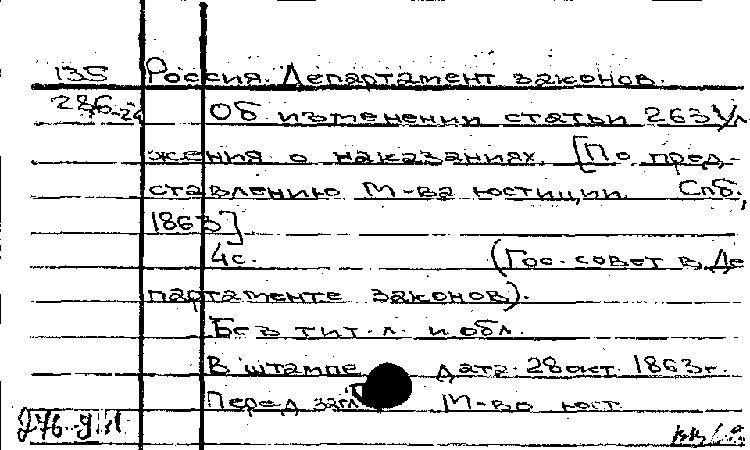 135 Россия. Департамент законов.
286-24 Об изменении статьи 263 Ул
жения о наказаниях. [По пред-
ставлению М-ва юстиции. Спб.,
1863]
4с. (Гос. совет в Де
партаменте законов).
Без тит. л. и обл.
В штампе дата: 28 окт. 1863 г.
Перед загл. М-во юст